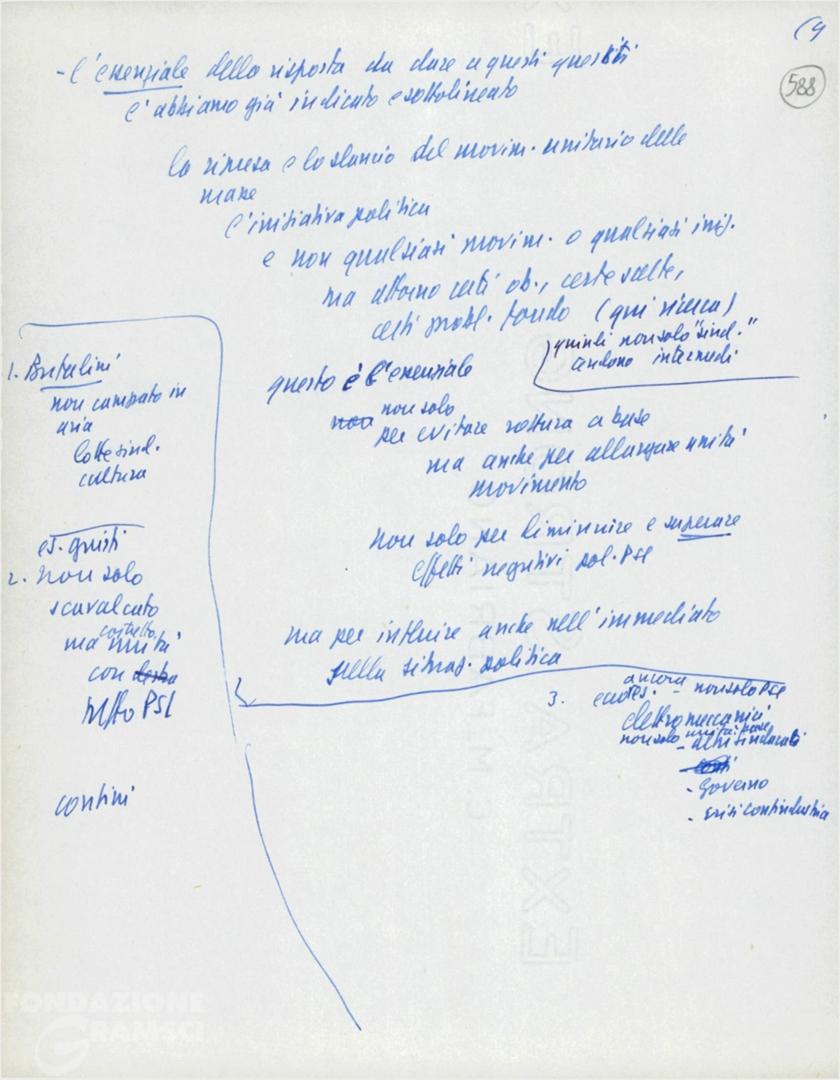 (4
588
- l'essenziale della risposta da dare a questi quesiti
l'abbiamo già indicato e sottolineato
la ripresa e lo slancio del movim. unitario delle
masse
l'iniziativa politica
e non qualsiasi movim. o qualsiasi iniz.
ma attorno certi ob., certe scelte,
certi probl. fondo (qui ricerca)
quindi non solo "sind."
anche intermedi
questo è l'essenziale
non non solo
per evitare rottura a base
ma anche per allargare unità
movimento
non solo per diminuire e superare
effetti negativi pol. PSI
ma per influire anche nell'immediato
sulla situaz. politica
1. Bufalini
non campato in
aria
lotte sind.
cultura
es. giusti
2. non solo
scavalcato
ma unità
con destra
tutto PSI
contini
3. ancora
- non solo PSI
elettromeccanici
non solo unità base
- altri sindacati
- governo
- crisi confindustria
EXTRA STRONG
C.M. FABRIANO
FONDAZIONE
GRAMSCI